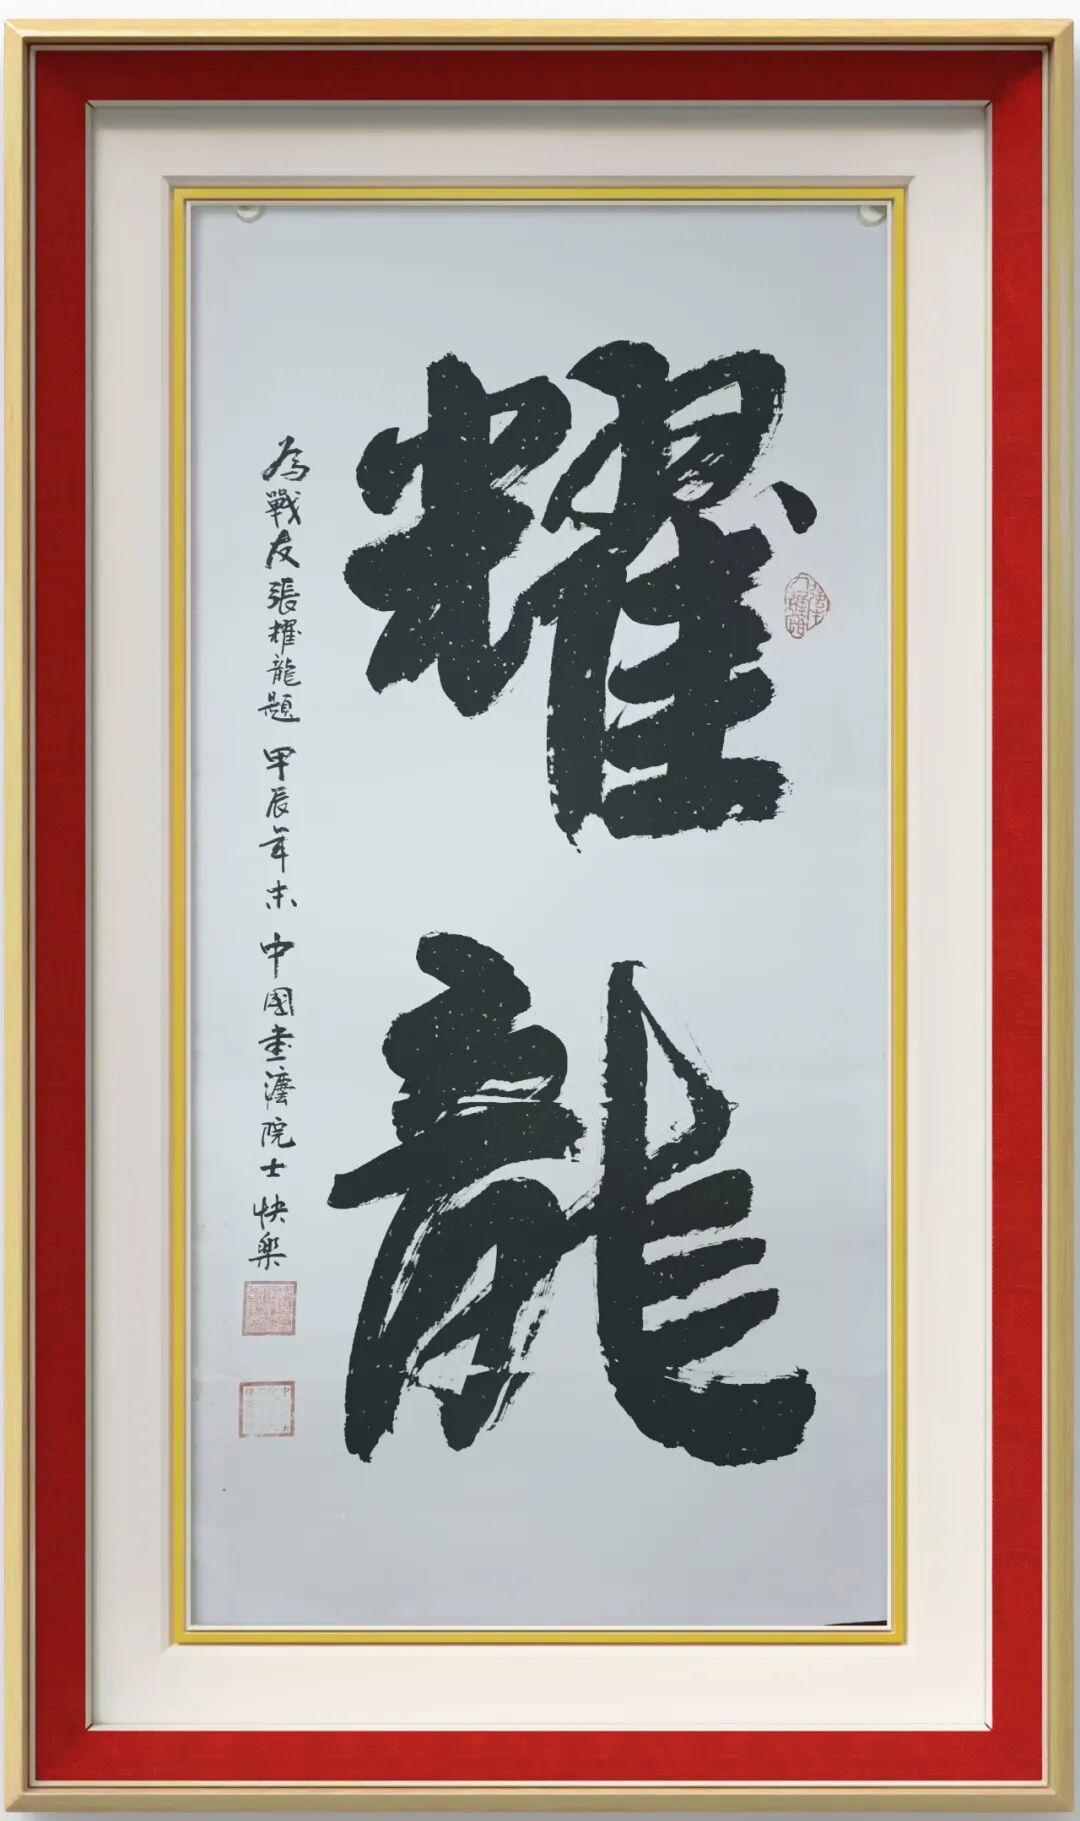 耀龍
為戰友張耀龍題 甲辰年末 中國書濂院士 快樂